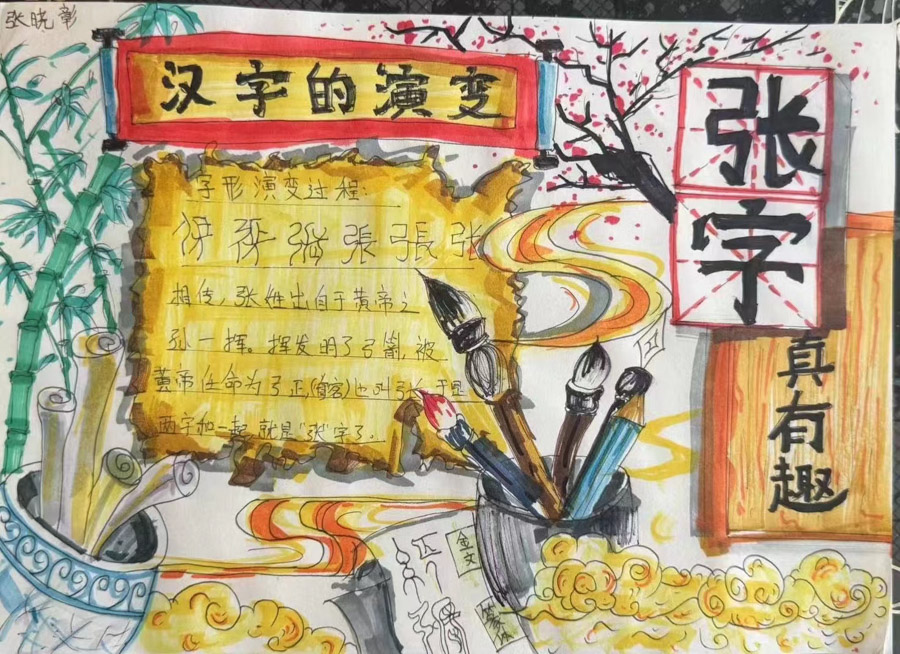 张晓彰
汉字的演变
张字
真有趣
字形演变过程:
張 張 张
相传,张姓出自于黄帝之
孙一挥。挥发明了弓箭,被
黄帝任命为弓正,也叫弓长,于是
两字和一起,就是“张”字了。
金文